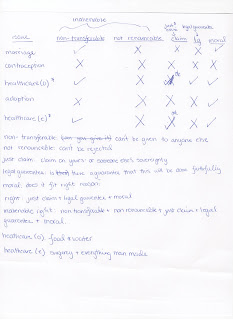 inalienable
just claim legal guarantee
name non-transferable not renounceable claim lg moral
marriage
contraception
healthcare (a)*
adoption
healthcare (e)*
non-transferable can't be given to anyone else
not renounceable can't be rejected
just claim: claim on yours or someone else's sovereignty
legal guarantee: is there a guarantee that this will be done faithfully
moral: does it fit right reason
right: just claim + legal guarantee + moral
inalienable right: non transferable + non renounceable + just claim + legal
guarantee + moral
healthcare (a): food + water
healthcare (e): surgery + everything man made